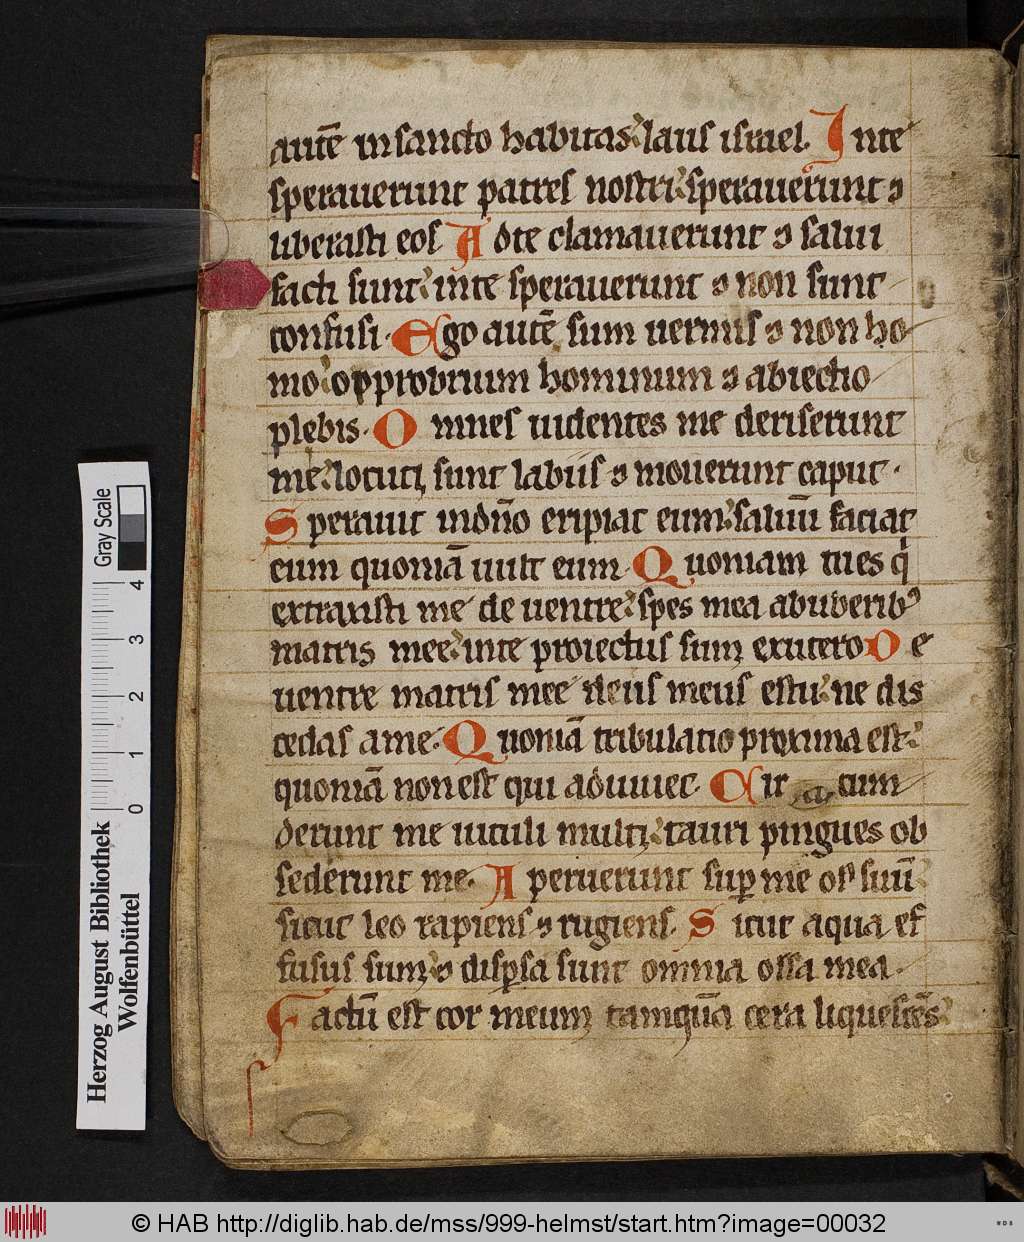 autē in sancto habitas laus israel. In te
sperauerunt patres nostri sperauerunt ⁊
liberasti eos Ad te clamauerunt ⁊ salui
facti sunt in te sperauerunt ⁊ non sunt
confusi. Ego autē sum uermis ⁊ non ho
mo opprobrium hominum ⁊ abiectio
plebis. Omnes uidentes me deriserunt
me locuti sunt labiis ⁊ mouerunt caput.
Sperauit in dn̄o eripiat eum saluū faciat
eum quoniā uult eum. Quoniam tu es q
extraxisti me de uentre spes mea ab uberibꝰ
matris mee in te proiectus sum ex utero De
uentre matris mee deus meus es tu ne dis
cedas a me. Quoniā tribulatio proxima est
quoniā non est qui adiuuet. Cir cum
derunt me uituli multi tauri pingues ob
sederunt me. Aperuerunt suꝑ me os suū
sicut leo rapiens ⁊ rugiens. Sicut aqua ef
fusus sum ⁊ disꝑsa sunt omnia ossa mea.
Factū est cor meum tamquā cera liquescēs
Herzog August Bibliothek
Wolfenbüttel
Gray Scale
0 1 2 3 4
© HAB http://diglib.hab.de/mss/999-helmst/start.htm?image=00032